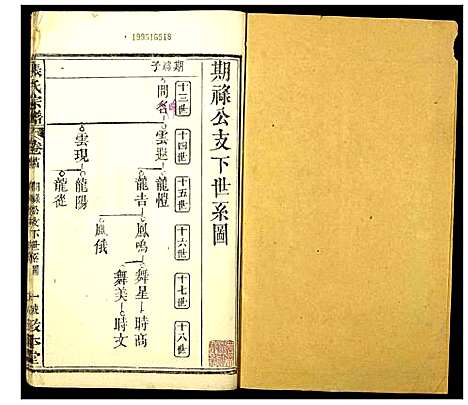 199516518
期祿公支下世系圖
十三世
十四世
十五世
十六世
十七世
十八世
期祿子
問名
雲遐
龍愷
龍吉
鳳鳴
舞星
時高
舞美
時文
鳳俄
雲現
龍陽
龍從
張氏宗譜
卷
期祿公支下世系圖
敦本堂